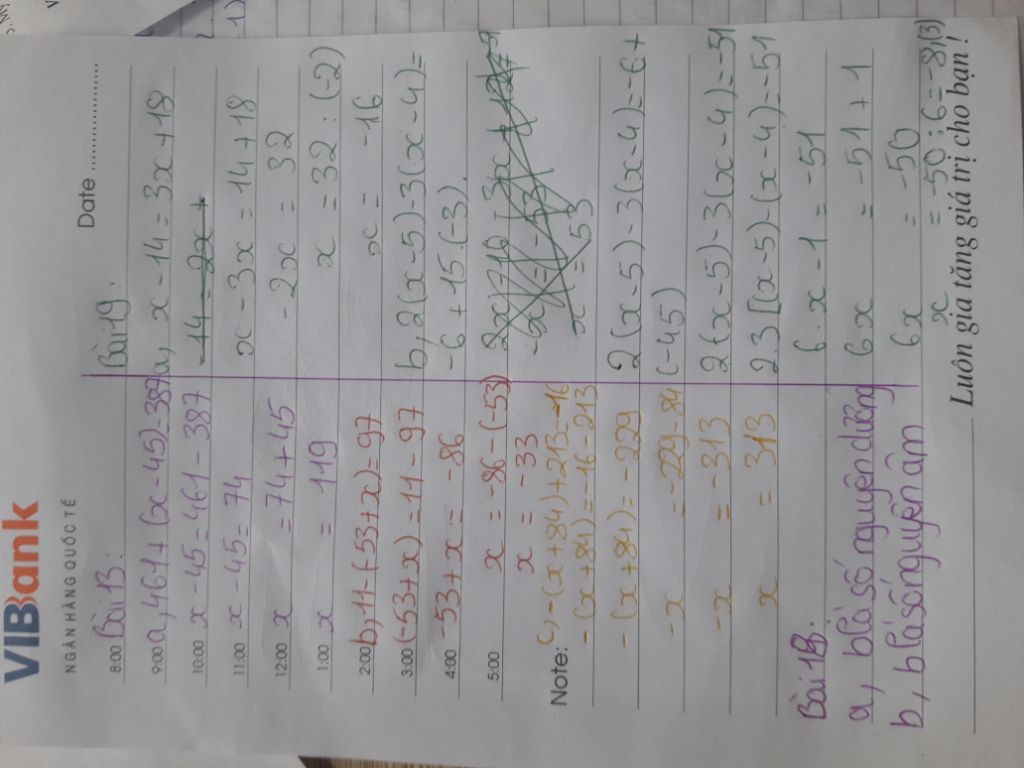 VIBank
NGÂN HÀNG QUỐC TẾ
Date
8:00 Bài 1B:
9:00 a, 461 + (x - 45) = 387
10:00 x - 45 = 461 - 387
11:00 x - 45 = 74
12:00 x = 74 + 45
1:00 x = 119
2:00 b, 11 - (-53 + x) = 97
3:00 (-53 + x) = 11 - 97
4:00 -53 + x = -86
5:00 x = -86 - (-53)
x = -33
Note: c, -(x + 84) + 213 = -16
-(x + 84) = -16 - 213
-(x + 84) = -229
-x = -229 - 84
-x = -313
x = 313
Bài 1B.
a, b là số nguyên dương
b, b là số nguyên âm
Bài 19:
a, x - 14 = 3x + 18
-14 = 2x +
x - 3x = 14 + 18
-2x = 32
x = 32 : (-2)
x = -16
b, 2(x - 5) - 3(x - 4) =
-6 + 15.(-3).
x = 53
2(x - 5) - 3(x - 4) = -6 +
(-45)
2(x - 5) - 3(x - 4) = -51
2.3[(x - 5) - (x - 4) = -51
6.x - 1 = -51
6x = -51 + 1
6x = -50
x = -50 : 6 = -8,(3)
Luôn gia tăng giá trị cho bạn!